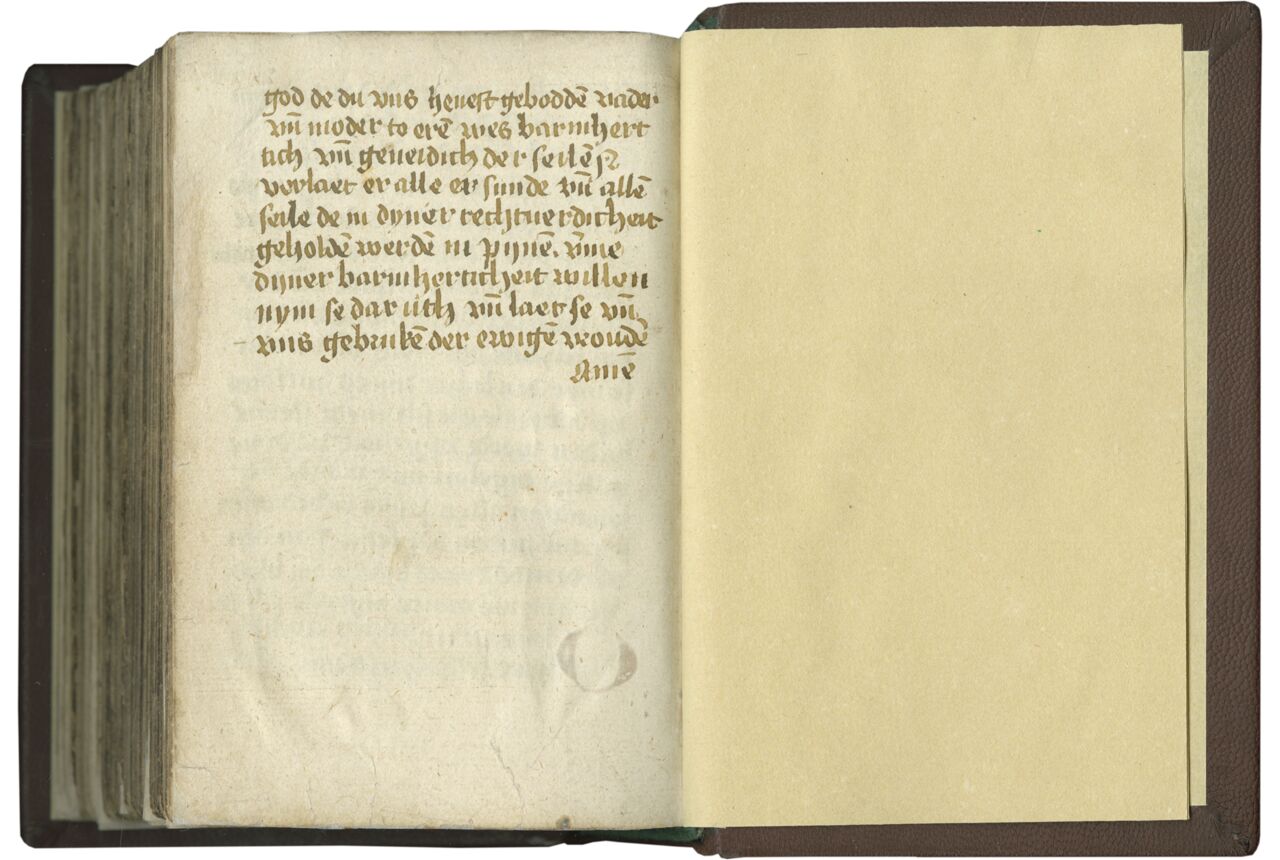 god de du vns heuest geboddē vader
vn̄ moder to erē wes barmhert
tich vn̄ geneidich der seilē
vorlaet er alle er sunde vn̄ allē
seile de in dyner rechtuerdicheit
geholdē werdē in pijnē. v̄me
dijner barmherticheit willen
nym se dar uth vn̄ laet se vn̄
vns gebrukē der ewigē vroudē
Amē